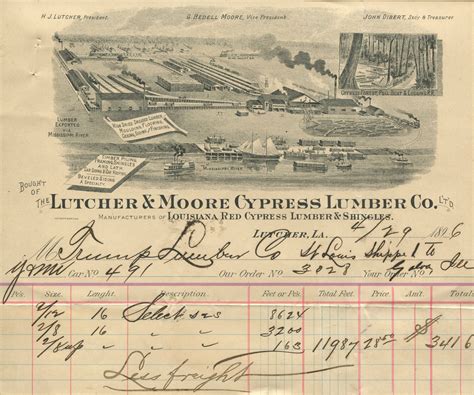 H.J. LUTCHER, PRESIDENT. G. BEDELL MOORE, VICE PRESIDENT. JOHN DIBERT, SEC'Y & TREASURER
CYPRESS FOREST, PULL BOAT & LOGGING R.R.
LUMBER
EXPORTED
VIA
MISSISSIPPI RIVER
KILN DRIED DRESSED LUMBER
MOULDING, FLOORING,
CEILING, SIDING & FINISHING
TIMBER, PILING,
FRAMING, SHINGLES
AND LATH
CAR SIDING & CAR ROOFING
BEVELED SIDING
A SPECIALTY.
MISSISSIPPI RIVER
BOUGHT OF
THE LUTCHER & MOORE CYPRESS LUMBER CO. LTD
MANUFACTURERS OF LOUISIANA RED CYPRESS LUMBER & SHINGLES.
LUTCHER, LA. 4/29 1896
M Trump Lumber Co St Louis Shipped to
CAR No 491 OUR ORDER No 3028 YOUR ORDER No Ill
Pcs. Size. Lenght. Description. Feet or Amt. Total Feet. Price Amt. Total
2/12 16 Select S2S 8624
2/8 16 " " 3200
2/8 16 " " 163 11987 28.50 $ 3416
Less freight